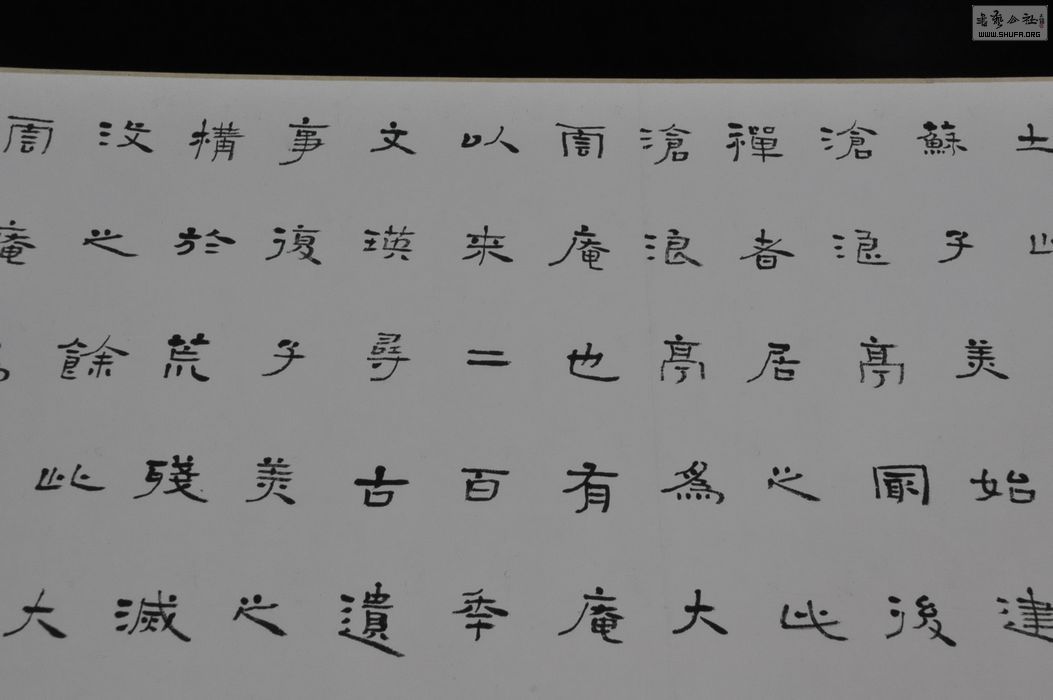 土此
蘇子美始建
滄浪亭最後
禪者居之此
滄浪亭爲大
雲庵也有庵
以来二百年
文瑛尋古遺
事復子美之
構於荒殘滅
没之餘此大
雲庵
書藝公社
WWW.SHUFA.ORG